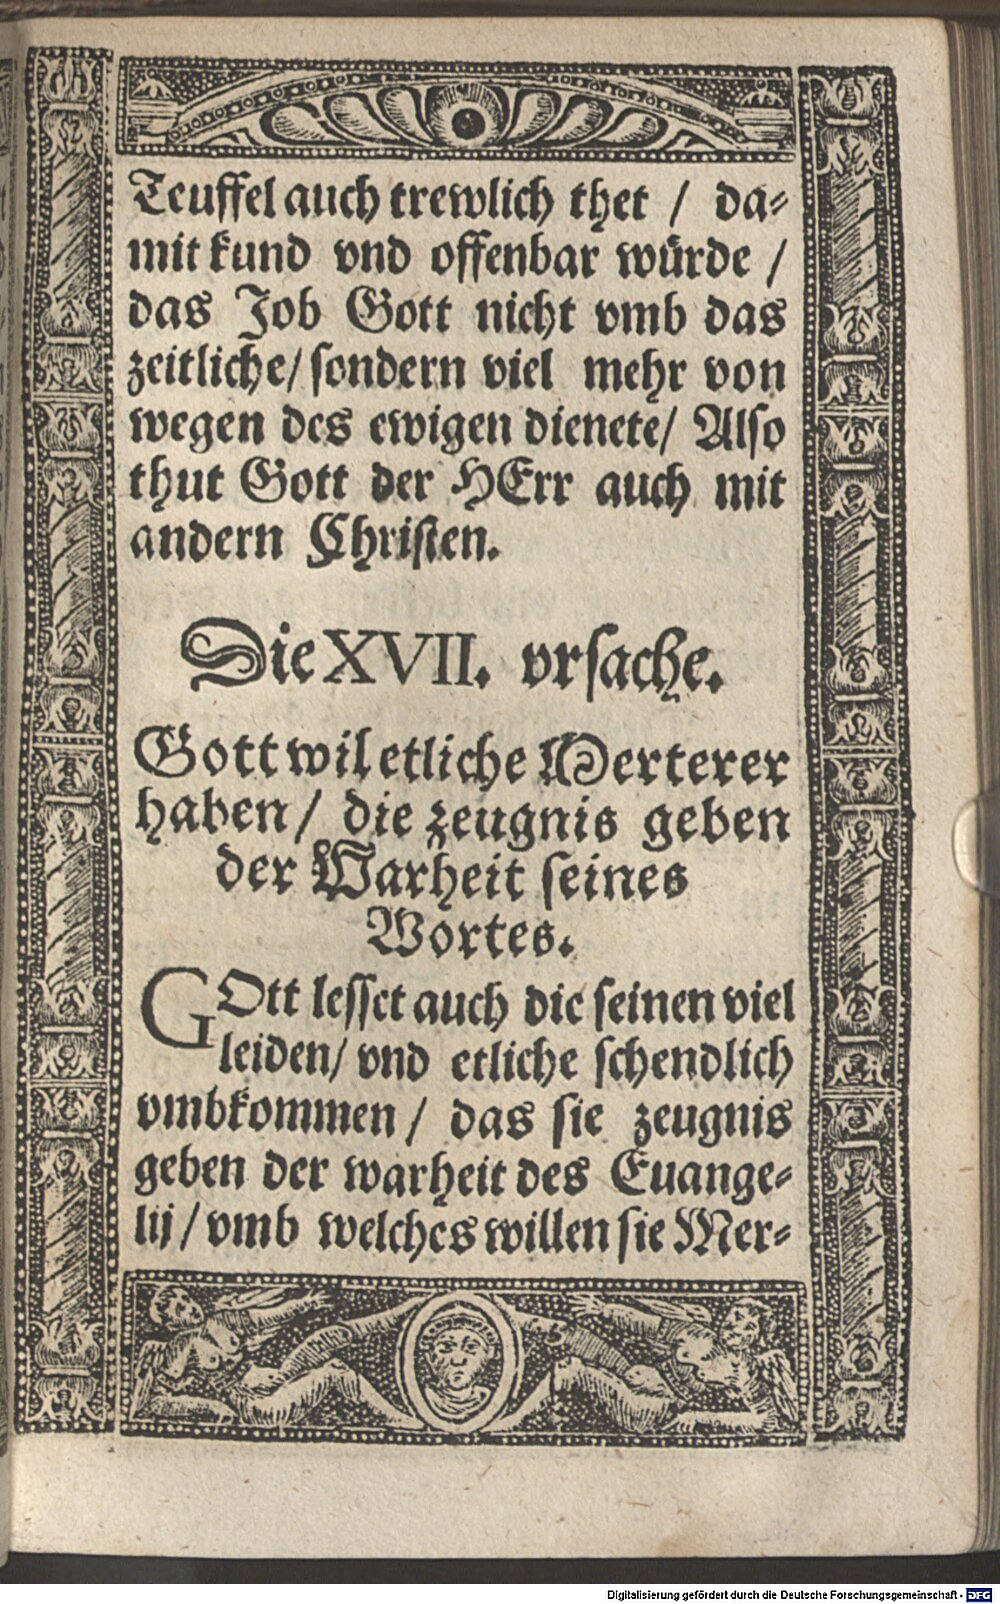 Teuffel auch trewlich thet / da⸗
mit kund vnd offenbar würde /
das Job Gott nicht vmb das
zeitliche / sondern viel mehr von
wegen des ewigen dienete / Also
thut Gott der HErr auch mit
andern Christen.
Die XVII. vrsache.
Gott wil etliche Merterer
haben / die zeugnis geben
der Warheit seines
Wortes.
GOtt lesset auch die seinen viel
leiden / vnd etliche schendlich
vmbkommen / das sie zeugnis
geben der warheit des Euange⸗
lij / vmb welches willen sie Mer⸗
Digitalisierung gefördert durch die Deutsche Forschungsgemeinschaft - DFG